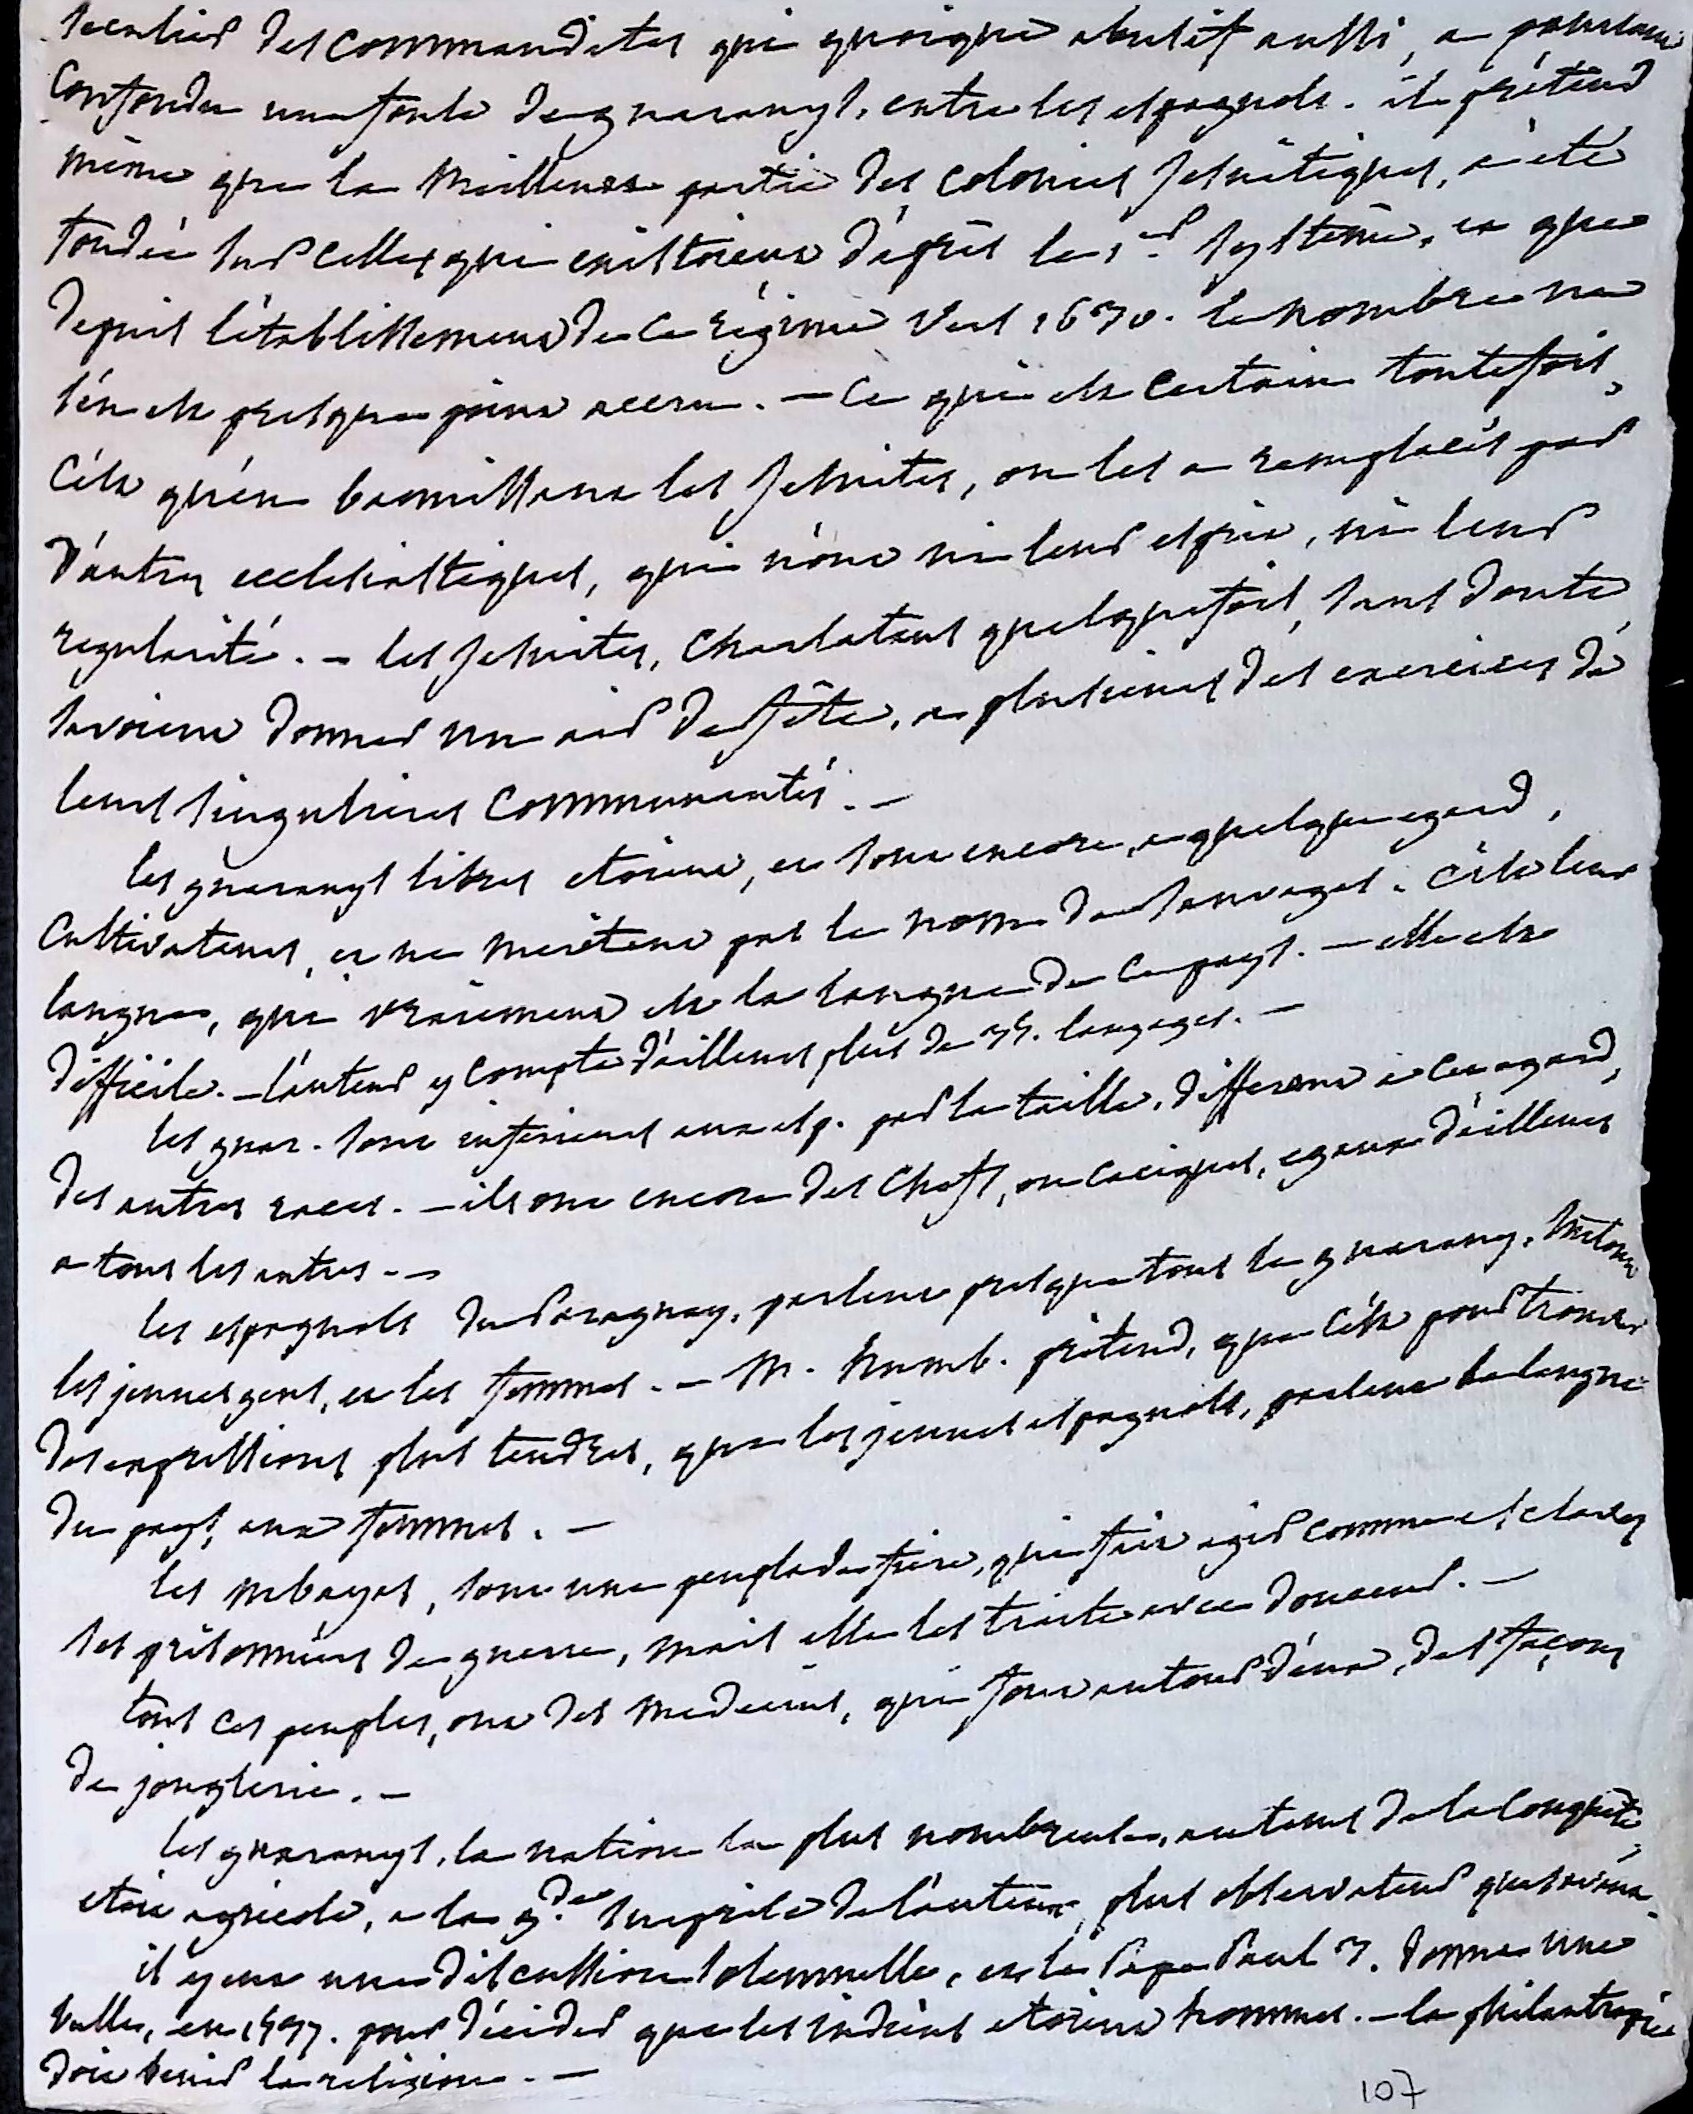 seculier des commanditas qui quoique abusif aussi, a pourtant
confondu une foule de guaranys, entre les espagnols. il prétend
même que la meilleure partie des colonies jesuitiques, a été
fondée sur celles qui existoient d'après le 1.er système, et que
depuis l'établissement de ce régime vers 1670. le nombre ne
s'en est presque point accru. — ce qui est certain toutefois,
c'est qu'en bannissant les jesuites, on les a remplacés par
d'autres ecclesiastiques, qui n'ont ni leur esprit, ni leur
regularité. — les jesuites, charlatans quelquefois, sans doute,
savoient donner un air de fête, a plusieurs des exercices de
leurs singulieres communautés. —
les guaranys libres etoient, et sont encore, a quelque egard,
cultivateurs, et ne meritent pas le nom de sauvages. c'est leur
langue, qui vraiment est la langue de ce pays. — elle est
difficile. — l'auteur y compte d'ailleurs plus de 35. langages. —
les guar. sont inferieurs aux esp. par la taille, different a cet egard,
des autres races. — ils ont encore des chefs, ou caciques, egaux d'ailleurs
a tous les autres. —
les espagnols du Paraguay, parlent presque tous le guarany, surtout
les jeunes gens, et les femmes. — M. humb. prétend, que c'est pour trouver
des expressions plus tendres, que les jeunes espagnols, parlent la langue
du pays, aux femmes. —
les mbayas, sont une peuplade fiere, qui fait agir comme esclaves
ses prisonniers de guerre, mais elle les traite avec douceur. —
tous ces peuples, ont des medecins, qui font autour d'eux, des façons
de jonglerie. —
les guaranys, la nation la plus nombreuse, au tems de la conquête,
etoit agricole, a la g.de surprise de l'auteur, plus observateur que savant.
il y eut une discussion solemnelle, et le Pape Paul 3. donna une
bulle, en 1537. pour décider que les indiens etoient hommes. — la philantropie
doit benir la religion. —
107